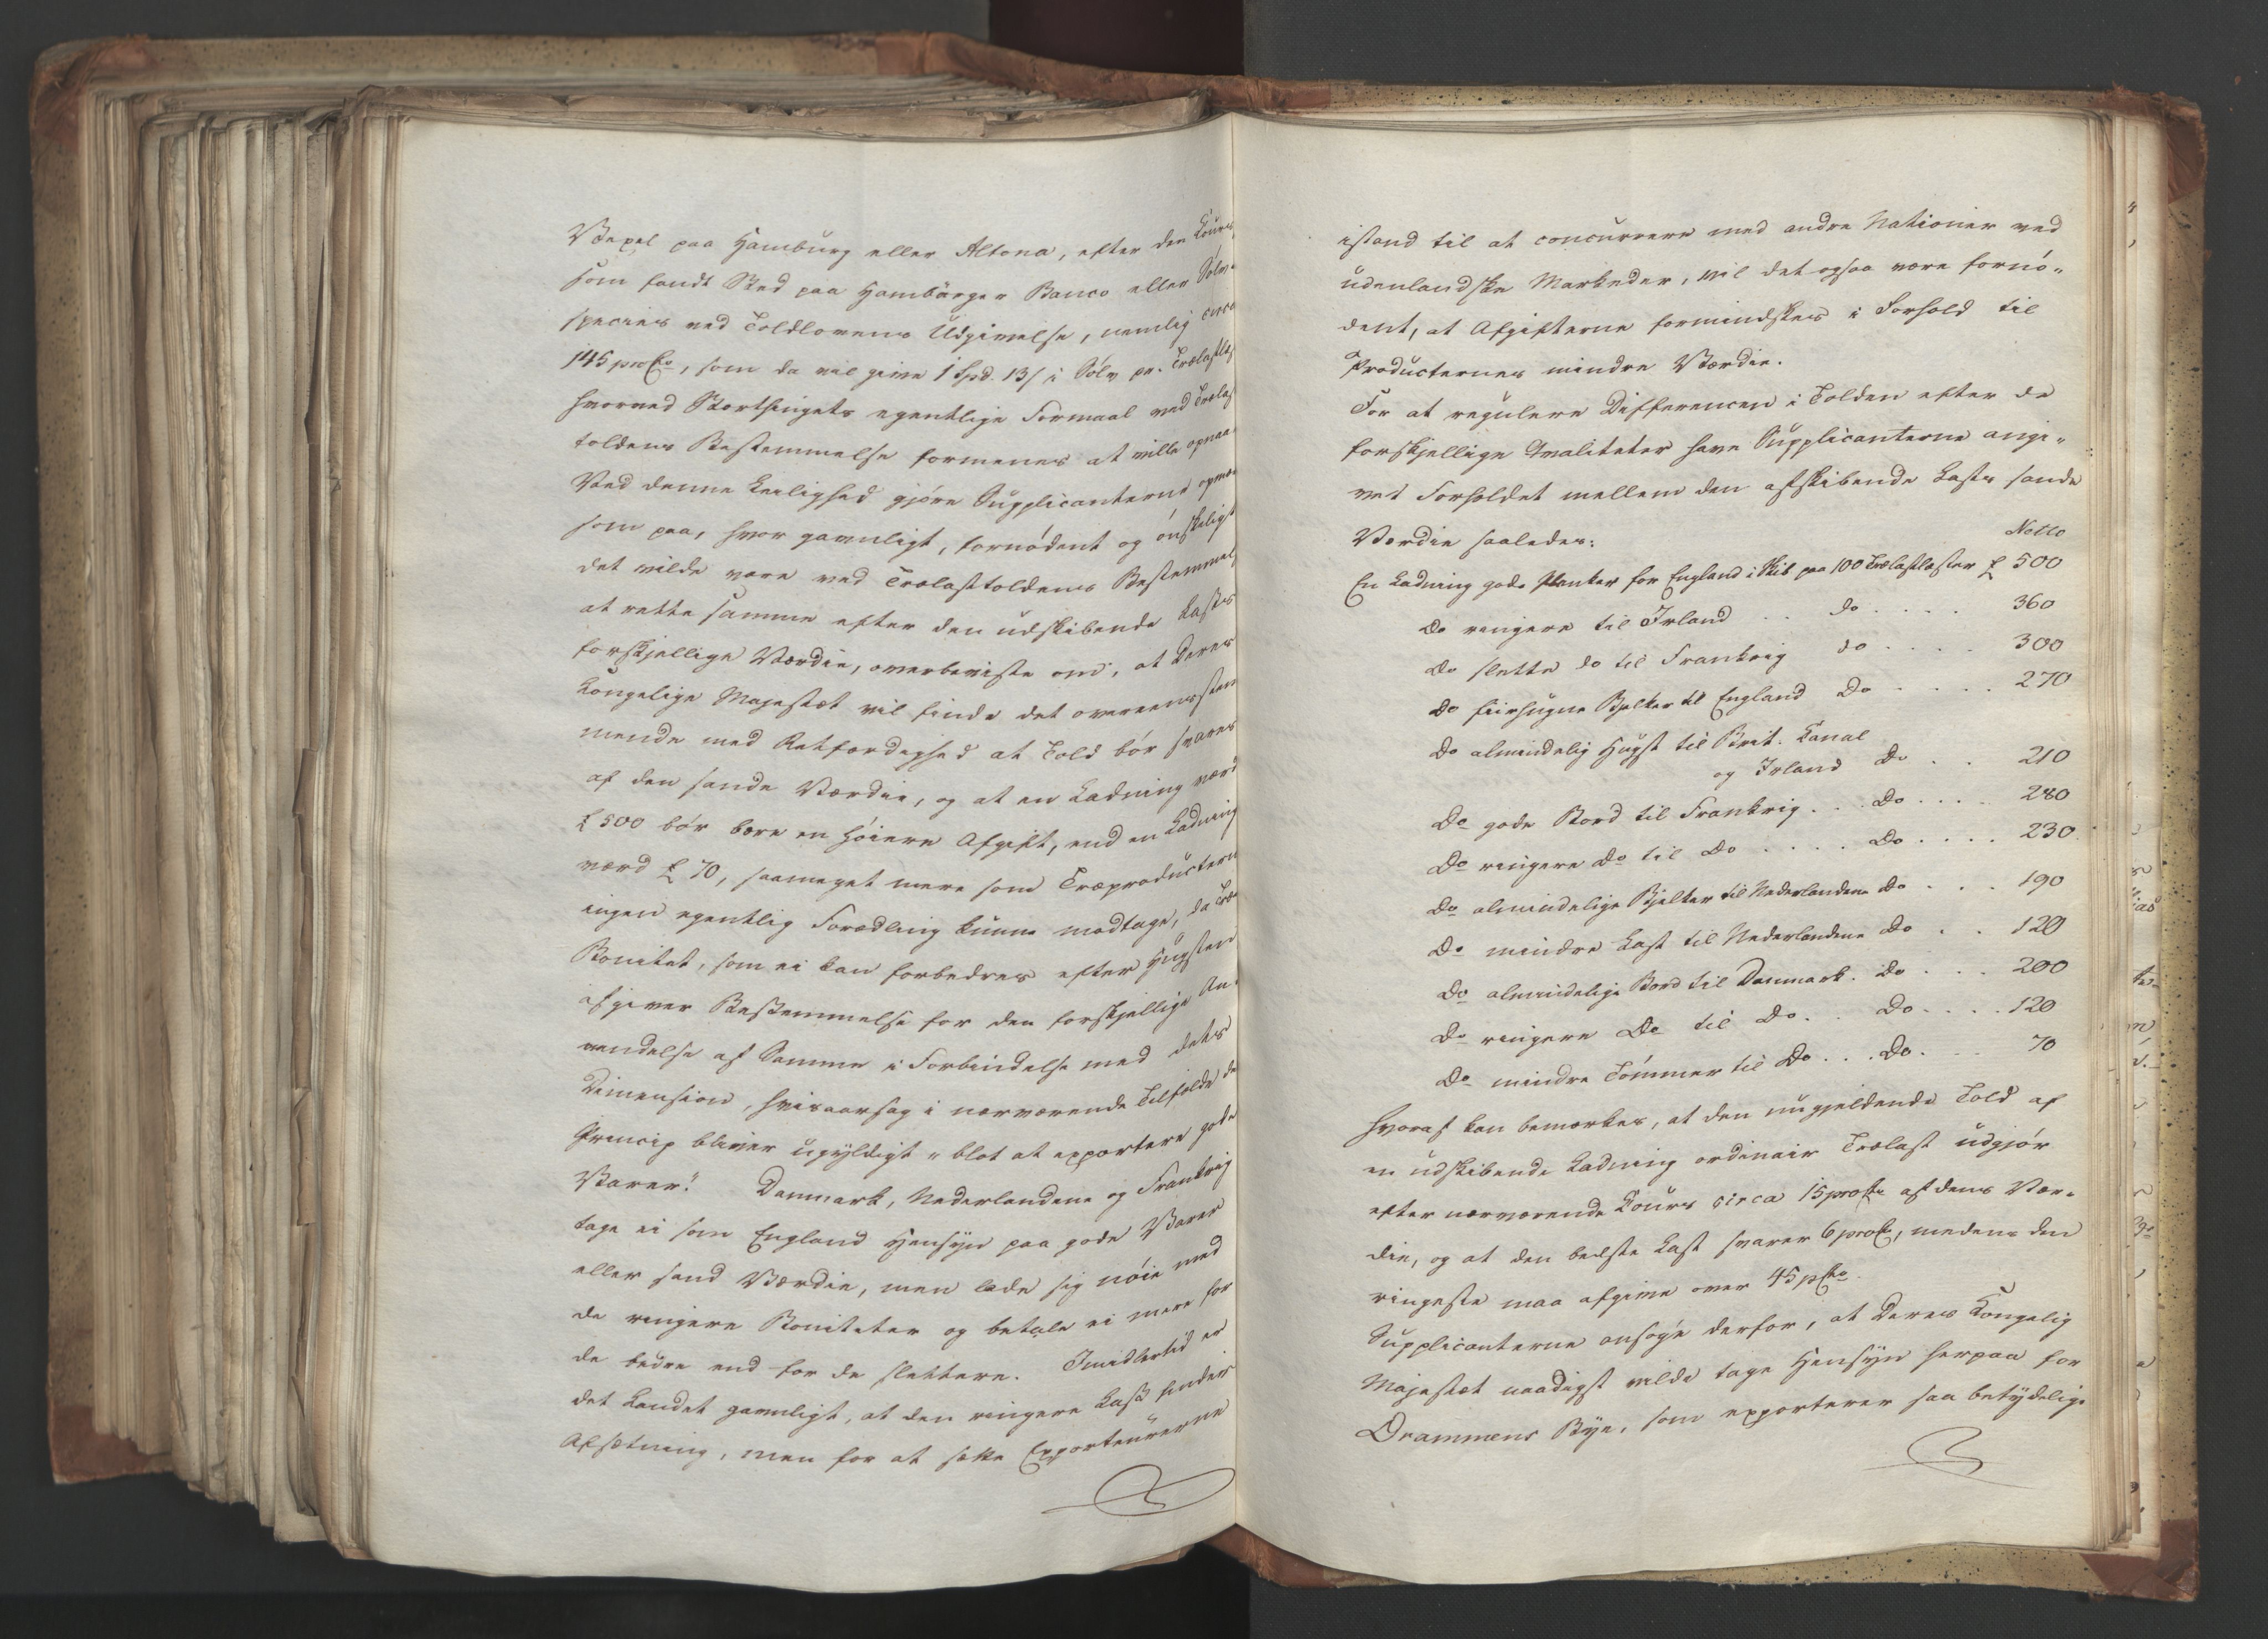 Vexel paa Hamburg eller Altona, efter den Cours,
som fandt Sted paa Hamburger Banco eller Sølv-
species ved Toldlovens Udgivelse, nemlig circa
145 proCto, som da vil give 1 Spd. 13/ i Sølv pr. Trælastlæst
hvorved Storthingets egentlige Formaal ved Trælast
toldens Bestemmelse formenes at ville opnaaes
Ved denne Leilighed gjøre Supplicanterne opmærk
som paa, hvor gavnligt, fornødent og ønskeligt
det vilde være ved Trælasttoldens Bestemmelse
at rette samme efter den udskibende Lasts
forskjellige Værdie, overbeviste om, at Deres
Kongelige Majestæt vil finde det overeensstem
mende med Retfærdighed at Told bør svares
af den sande Værdie, og at en Ladning værd
£ 500 bør bære en høiere Afgift, end en Ladning
værd £ 70, saameget mere som Træproducterne
ingen egentlig Forædling kunne modtage, da Træets
Bonitet, som ei kan forbedres efter Hugsten
afgiver Bestemmelse for den forskjellige An-
vendelse af Samme i Forbindelse med dets
Dimension, hvisaarsag i nærværende Tilfælde det
Princip bliver ugyldigt "blot at exportere gode
Varer." Danmark, Nederlandene og Frankrig
tage ei som England Hensyn paa gode Varer
eller sand Værdie, men lade sig nøie med
de ringere Boniteter og betale ei mere for
de bedre end for de slettere. Imidlertid er
det Landet gavnligt, at den ringere Last finder
Afsætning, men for at sætte Exporteurerne
istand til at concurrere med andre Nationer ved
udenlandske Markeder, vil det ogsaa være fornø-
dent, at Afgifterne formindskes i Forhold til
Producternes mindre Værdie.
For at regulere Differencen i Tolden efter de
forskjellige Qvaliteter have Supplicanterne angi-
vet Forholdet mellem den afskibende Lasts sande
Værdie saaledes: Netto
En Ladning gode Planker for England i Skib paa 100 Trælastlæster £ 500
Do ringere til Irland .. do .... 360
Do slette do til Frankrig do .... 300
Do fiirhugne Bjelker til England Do .... 270
Do almindelig Hugst til Brit. Canal
og Irland Do .. 210
Do gode Bord til Frankrig ... Do .... 280
Do ringere Do til Do .... Do .... 230
Do almindelige Bjelker til Nederlandene Do ... 190
Do mindre Last til Nederlandene Do .. 120
Do almindelige Bord til Danmark. Do ... 200
Do ringere Do til Do .. Do .... 120
Do mindre Tømmer til Do ... Do. .. 70
Hvoraf kan bemærkes, at den nugjeldende Told af
en udskibende Ladning ordinair Trælast udgjør
efter nærværende Cours circa 15 proCto af dens Vær-
die, og at den bedste Last svarer 6 proC, medens den
ringeste maa afgive over 45 pCto.
Supplicanterne ansøge derfor, at Deres Kongelig
Majestæt naadigst vilde tage Hensyn herpaa for
Drammens Bye, som exporterer saa betydelige